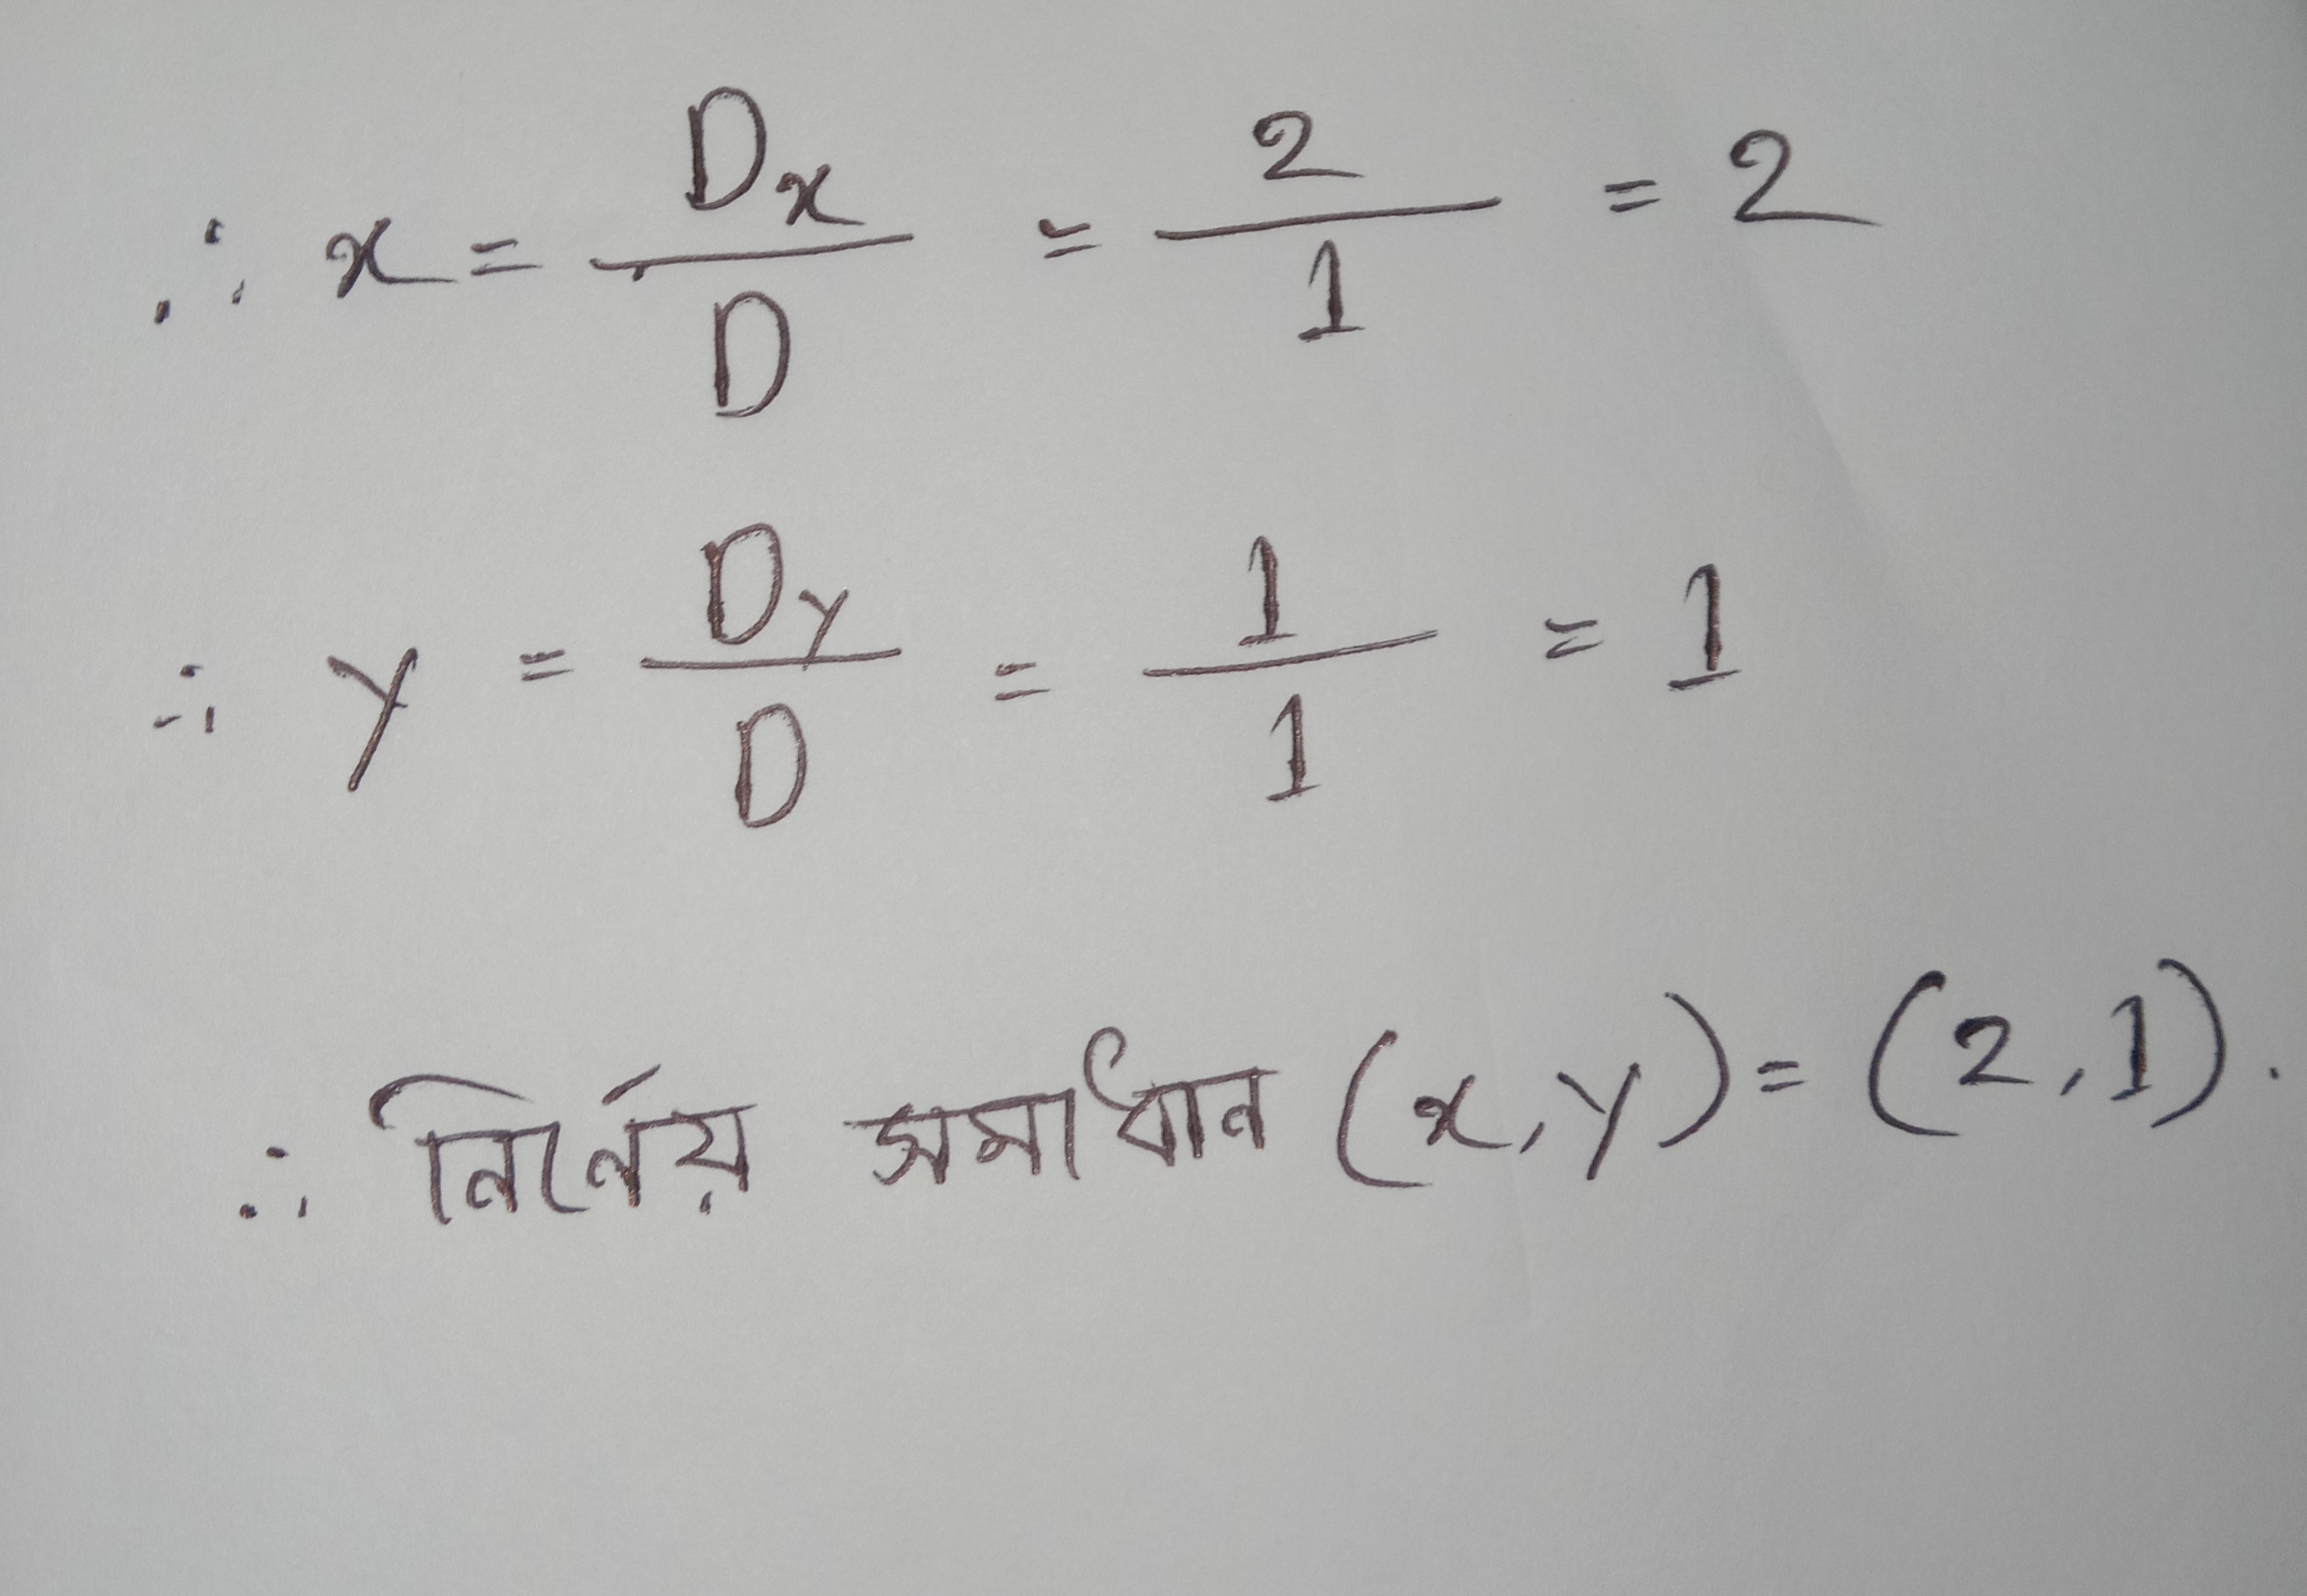 ∴ x = Dx/D = 2/1 = 2
∴ y = Dy/D = 1/1 = 1
∴ নির্নেয় সমাধান (x, y) = (2, 1).